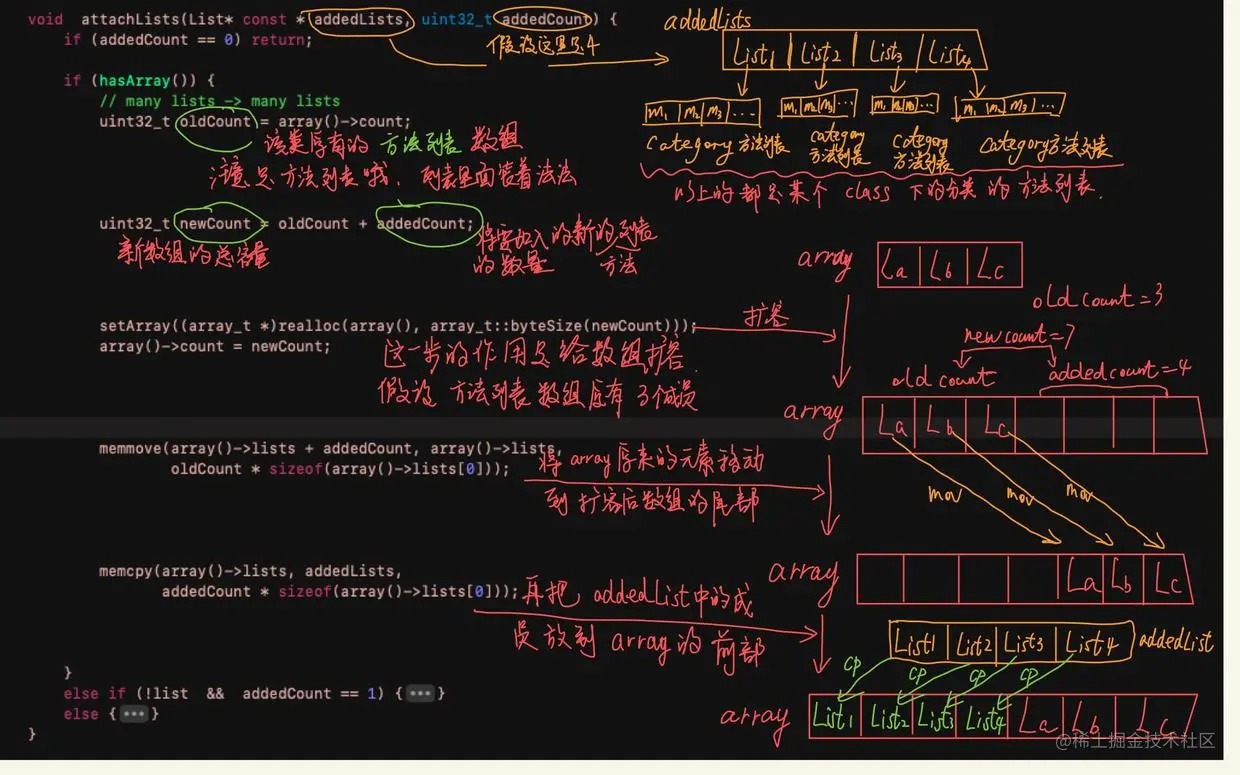 void attachLists(List* const * addedLists, uint32_t addedCount) {
if (addedCount == 0) return;
假设这里是4
addedLists
List1 List2 List3 List4
if (hasArray()) {
// many lists -> many lists
uint32_t oldCount = array()->count;
该类原有的 方法列表 数组
注意是方法列表哦、列表里面装着方法
m1 m2 m3 ... m1 m2 m3 ... m1 m2 m3 ... m1 m2 m3 ...
Category 方法列表 category 方法列表 category 方法列表 Category 方法列表
以上的都是某个 class 下的分类的方法列表.
uint32_t newCount = oldCount + addedCount;
新数组的总容量
将要加入的新的列表
的数量 方法
array La Lb Lc
old count=3
setArray((array_t *)realloc(array(), array_t::byteSize(newCount)));
扩容
array()->count = newCount;
这一步的作用是给数组扩容.
假设 方法列表数组原有 3个成员
new count=7
old count added count=4
array La Lb Lc
memmove(array()->lists + addedCount, array()->lists,
oldCount * sizeof(array()->lists[0]));
将 array 原来的元素移动
到扩容后数组的尾部
mov mov mov
array La Lb Lc
memcpy(array()->lists, addedLists,
addedCount * sizeof(array()->lists[0]));
再把 addedList中的成
员放到 array 的 前部
List1 List2 List3 List4 addedList
cp cp cp cp
array List1 List2 List3 List4 La Lb Lc
}
else if (!list && addedCount == 1) {•••}
else {•••}
}
@稀土掘金技术社区